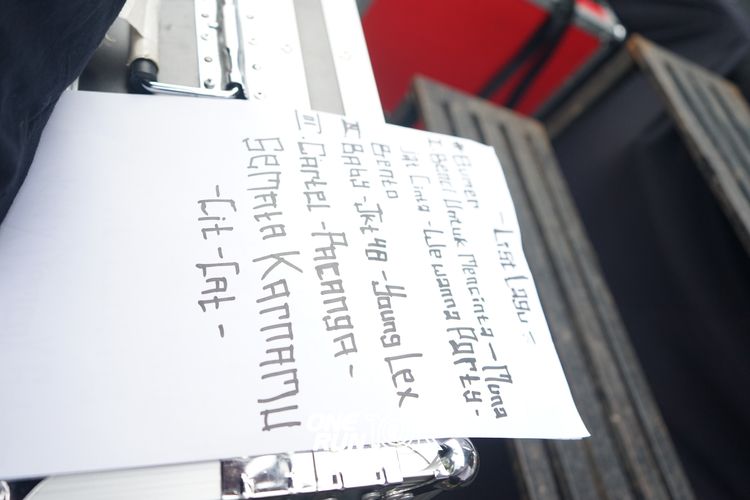 - List Lagu =
* Bumer
I Benci Untuk Mencinta - Muna
Jat Cinta - We wanna Party -
Bento
II Baby - Jkt 48 - Young Lex
III. Cartel - Pacanga -
Semata Karnamu
- Cit - Cat -
ONE
RUN